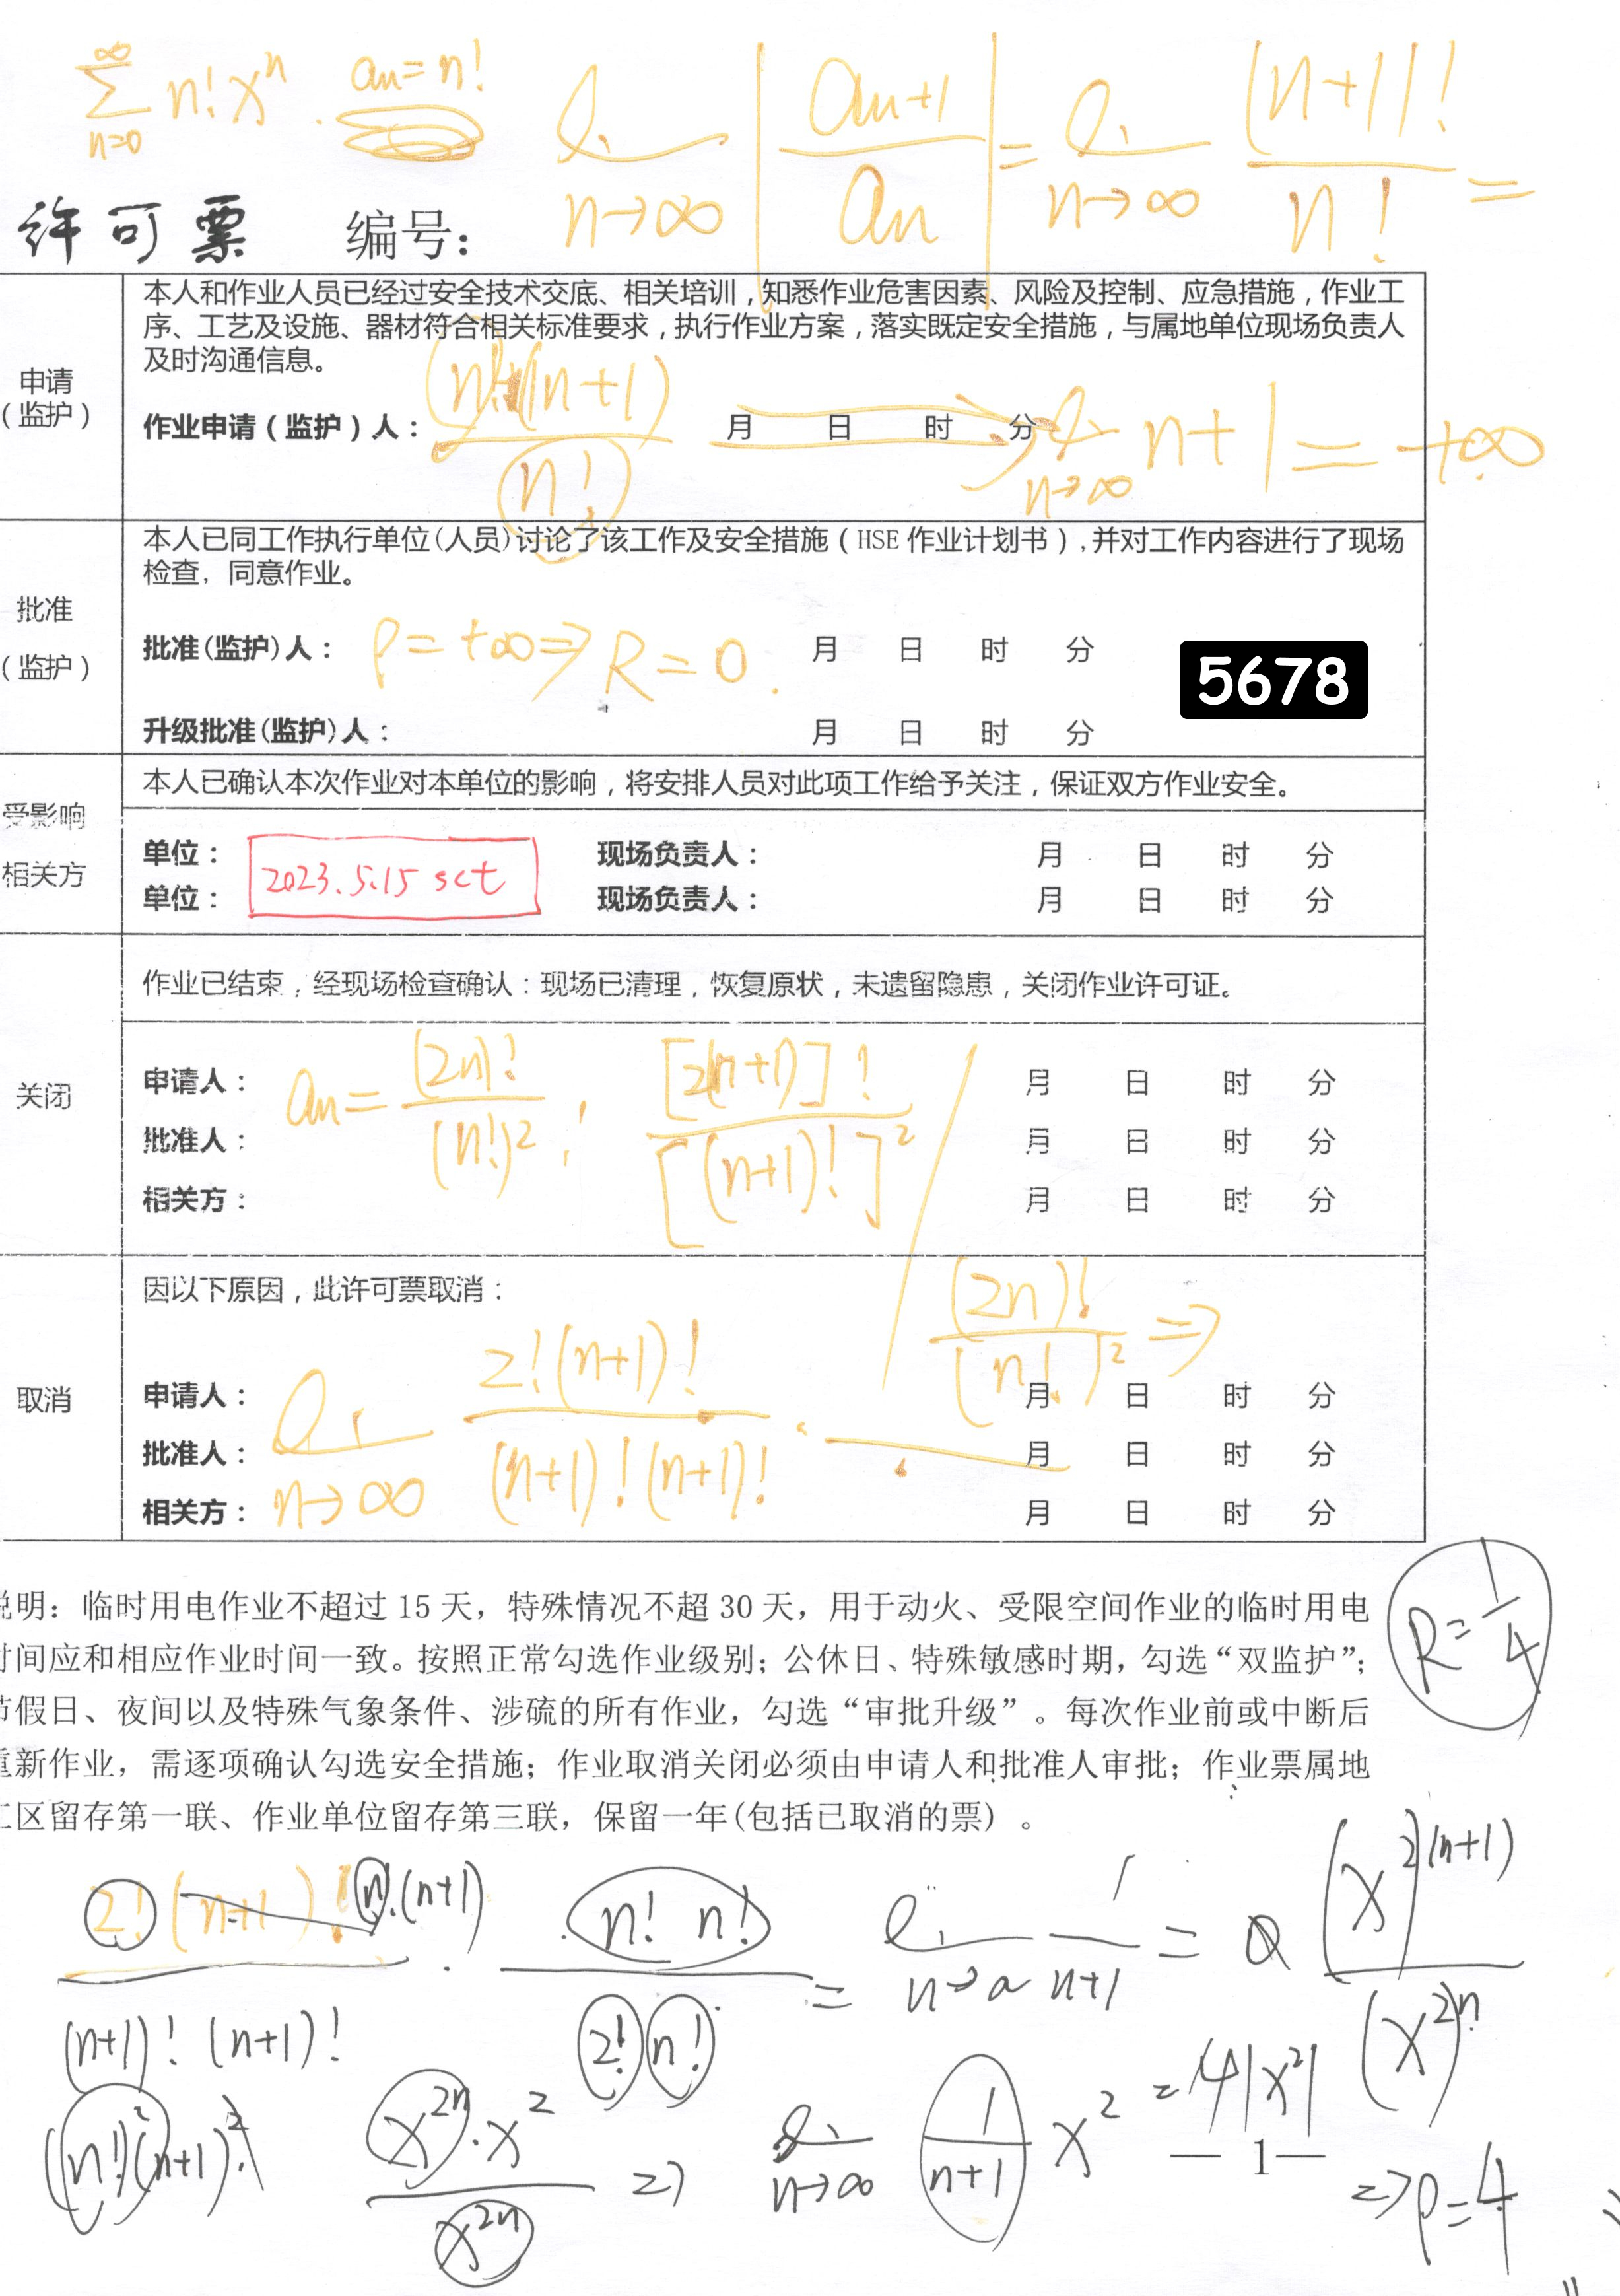 ∑_{n=0}^{∞} n! x^n . an = n!
lim_{n→∞} |an+1 / an| = lim_{n→∞} (n+1)! / n! =
许可票 编号：
申请
（监护）
本人和作业人员已经过安全技术交底、相关培训，知悉作业危害因素、风险及控制、应急措施，作业工
序、工艺及设施、器材符合相关标准要求，执行作业方案，落实既定安全措施，与属地单位现场负责人
及时沟通信息。
作业申请（监护）人： 月 日 时 分
n!(n+1) / n! lim_{n→∞} n+1 = +∞
批准
（监护）
本人已同工作执行单位(人员)讨论了该工作及安全措施（HSE 作业计划书），并对工作内容进行了现场
检查，同意作业。
批准(监护)人： ρ = +∞ ⇒ R = 0. 月 日 时 分
5678
升级批准(监护)人： 月 日 时 分
受影响
相关方
本人已确认本次作业对本单位的影响，将安排人员对此项工作给予关注，保证双方作业安全。
单位： 现场负责人： 月 日 时 分
2023.5.15 sct
单位： 现场负责人： 月 日 时 分
关闭
作业已结束，经现场检查确认：现场已清理，恢复原状，未遗留隐患，关闭作业许可证。
申请人： 月 日 时 分
批准人： 月 日 时 分
相关方： 月 日 时 分
an = (2n)! / (n!)^2 ; [2(n+1)]! / [(n+1)!]^2 / (2n)! / [n!]^2 ⇒
取消
因以下原因，此许可票取消：
申请人： 月 日 时 分
批准人： 月 日 时 分
相关方： 月 日 时 分
lim_{n→∞} 2!(n+1)! / (n+1)!(n+1)! ·
说明：临时用电作业不超过 15 天，特殊情况不超 30 天，用于动火、受限空间作业的临时用电
时间应和相应作业时间一致。按照正常勾选作业级别；公休日、特殊敏感时期，勾选“双监护”；
节假日、夜间以及特殊气象条件、涉硫的所有作业，勾选“审批升级”。每次作业前或中断后
重新作业，需逐项确认勾选安全措施；作业取消关闭必须由申请人和批准人审批；作业票属地
工区留存第一联、作业单位留存第三联，保留一年(包括已取消的票）。
R = 1/4
2!(n+1)! n!(n+1) / (n+1)!(n+1)! · n! n! / 2! n! = lim 1 / n+1 = 0
(x)^{2(n+1)} / (x)^{2n}
(n!)^2 (n+1)^2
x^{2n}·x^2 / x^{2n} ⇒ lim_{n→∞} 1/(n+1) x^2 = 4|x^2|
— 1 —
⇒ρ=4